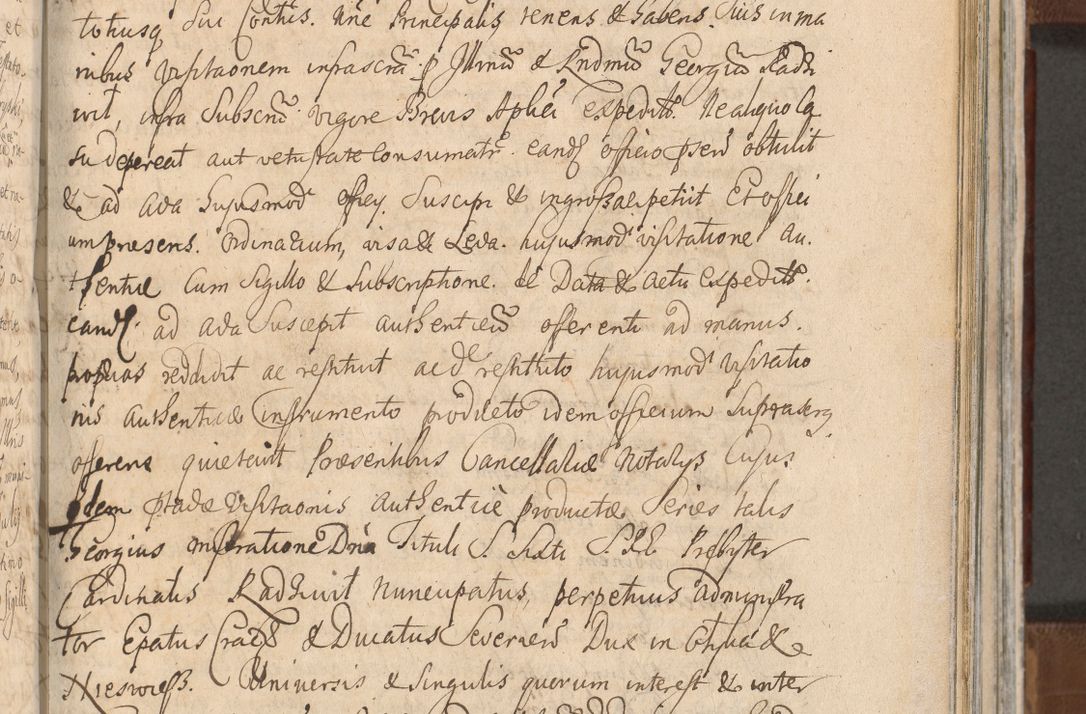 totiusq Sui Contis. Une Principalis tenens & habens Suis in ma
nibus visitaonem infrascrã p Jllmũ & Rndmũ Georgiũ Radzi
wil, infra Subscrũ vigore Brevis Aplici expeditt. Ne aliquo Ca
su depereat aut vetustate Consumatr. eand officio pserũ obtulit
& ad Acta hujusmod officy. Suscipi & ingrossari petiit Et offici
um presens. Ordinarium, visa & Lecta. hujusmod visitatione Au.
thentice Cum Sigillo & Subscriptione. de Data & actu Expeditt.
eand. ad acta Suscepit authenticũ offerenti ad manus.
proprias reddidit ac restituit ac de restituto hujusmod visitatio
nis authentico instrumento producto idem officium Suprascrip
offerens quietavit Præsentibus Cancellariæ Notarys Cujus
qdem ptactæ visitaonis authenticè productæ Series talis
Georgius miseratione Divina Tituli S. Sixti S.R.E. Presbyter
Cardinalis Radzivil nuncupatus, perpetuus Adminstra
tor Epatus Crac & Ducatus Severiens Dux in Olyka &
Nieswiess. Universis & Singulis quorum interest & inter